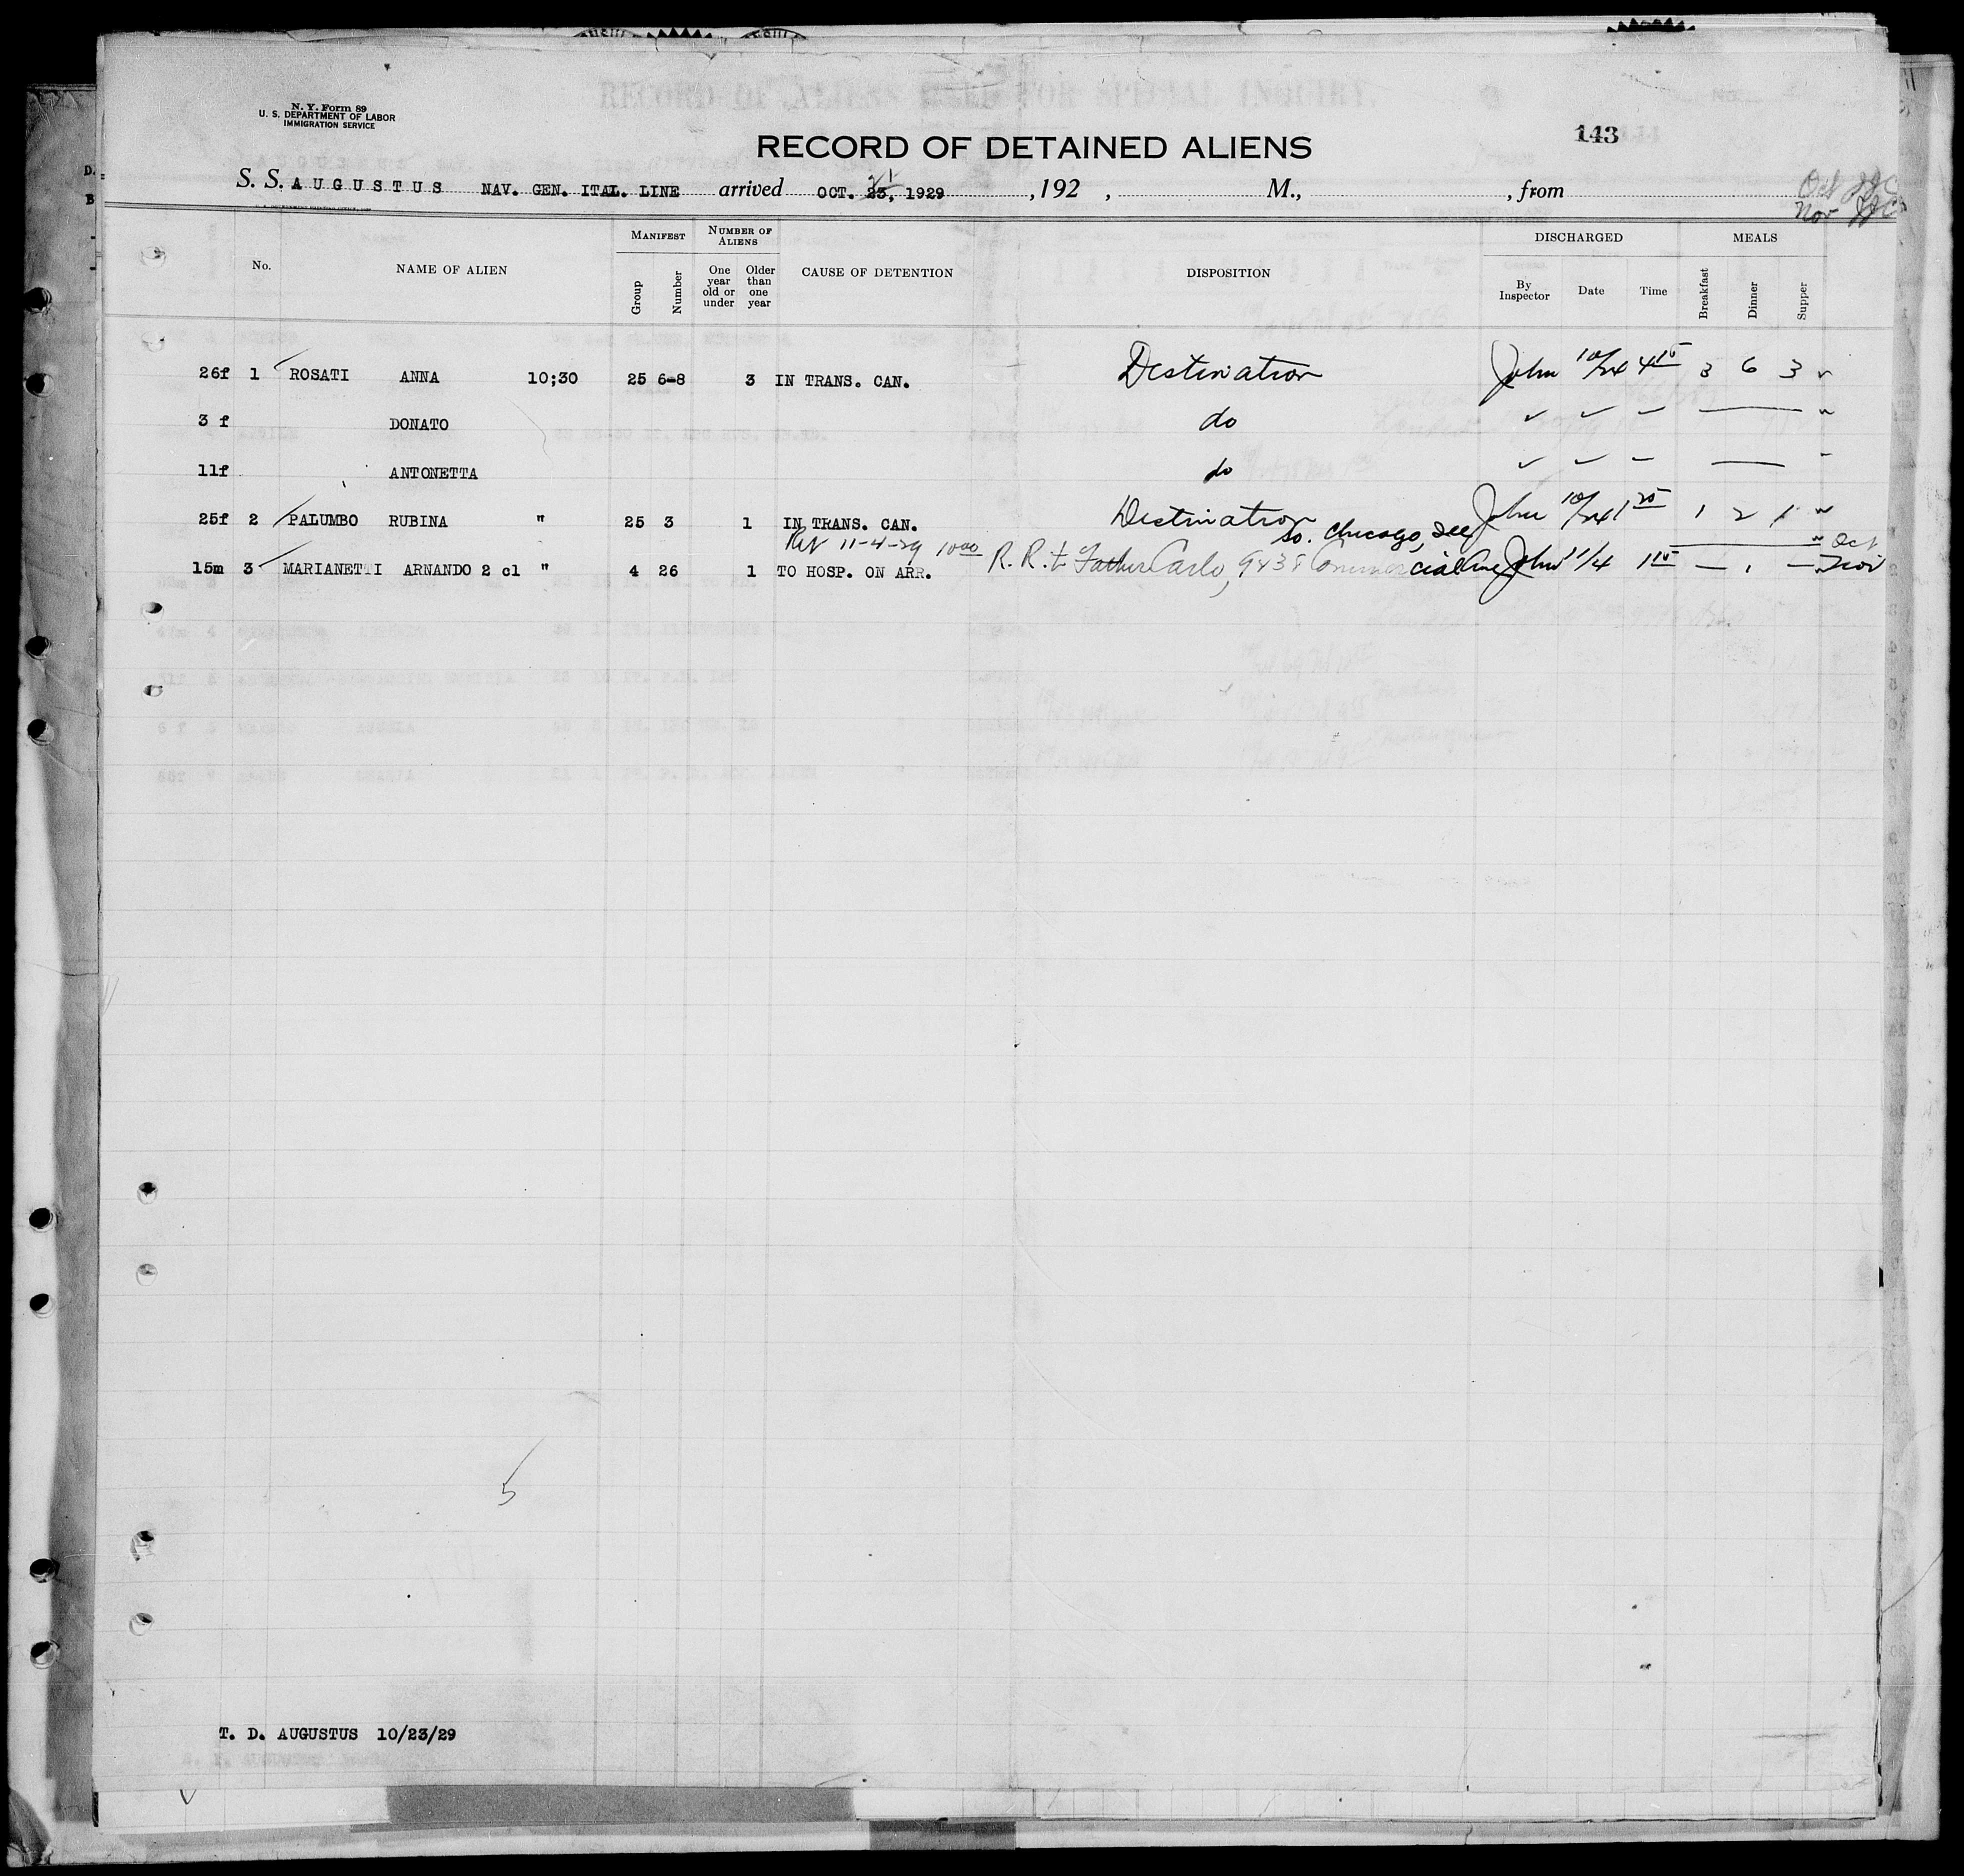 N. Y. Form 89
U. S. DEPARTMENT OF LABOR
IMMIGRATION SERVICE
RECORD OF DETAINED ALIENS
143
S. S. AUGUSTUS NAV. GEN. ITAL. LINE arrived OCT. 23, 1929 , 192 , M., , from
Oct
Nov
No. NAME OF ALIEN MANIFEST Group Number NUMBER OF ALIENS One year old or under Older than one year CAUSE OF DETENTION DISPOSITION DISCHARGED By Inspector Date Time MEALS Breakfast Dinner Supper
26f 1 ROSATI ANNA 10;30 25 6-8 3 IN TRANS. CAN. Destination John 10/24 4 15 3 6 3
3 f DONATO do
11f ANTONETTA do
25f 2 PALUMBO RUBINA " 25 3 1 IN TRANS. CAN. Destination John 10/24 1 2 1
11-4-29 10 00 So. Chicago, Ill Oct
15m 3 MARIANETTI ARNANDO 2 cl " 4 26 1 TO HOSP. ON ARR. R. R. t Father Carlo, 9438 Commercial Ave John 11/4 1 15 — 1 — Nov
5
T. D. AUGUSTUS 10/23/29